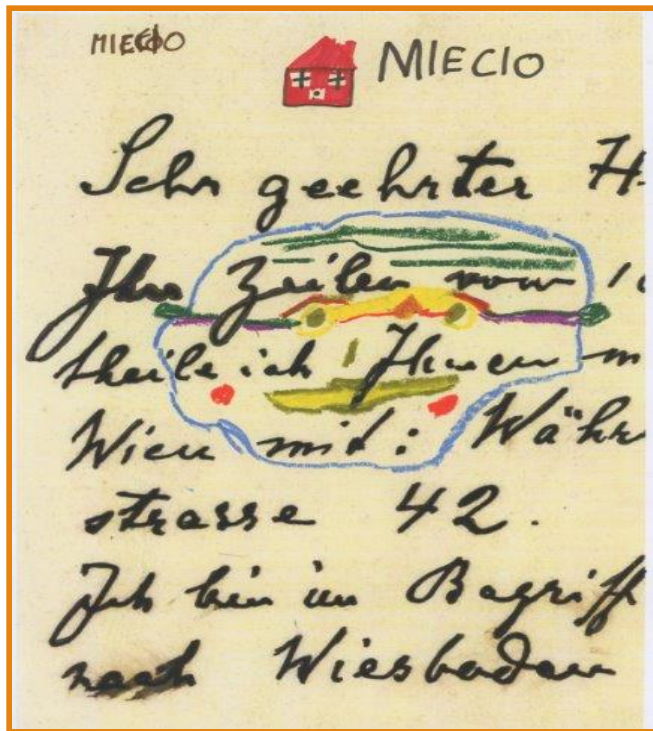 MIECIO MIECIO
Sehr geehrter H.
Ihre Zeilen vom
theile ich Ihnen m
Wien mit: Währ
strasse 42.
Ich bin im Begriff
nach Wiesbaden